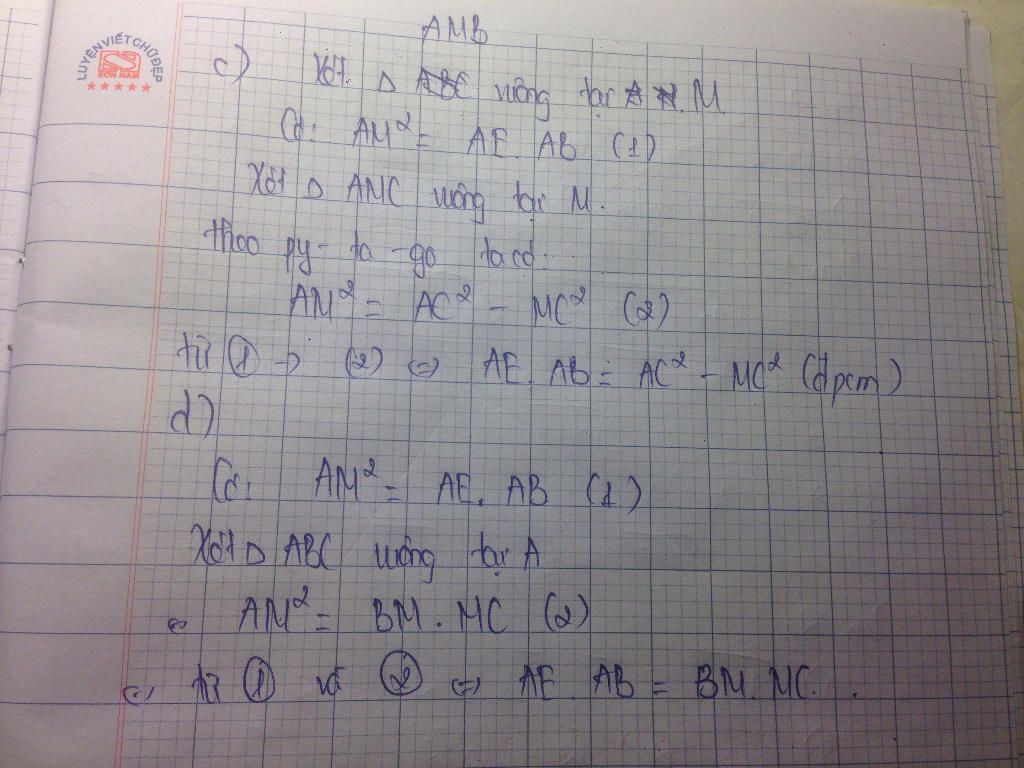 LUYỆN VIẾT CHỮ ĐẸP
SƠN NAM
AMB
c) Xét Δ ABC vuông tại A N. M
Có: AM² = AE. AB (1)
Xét Δ AMC vuông tại M.
theo py-ta-go ta có.
AM² = AC² - MC² (2)
từ ① → (2) ⇔ AE. AB = AC² - MC² (đpcm)
d)
Có: AM² = AE. AB (1)
Xét Δ ABC vuông tại A
⇔ AM² = BM. MC (2)
⇔ từ ① và ② ⇔ AE. AB = BM. MC.